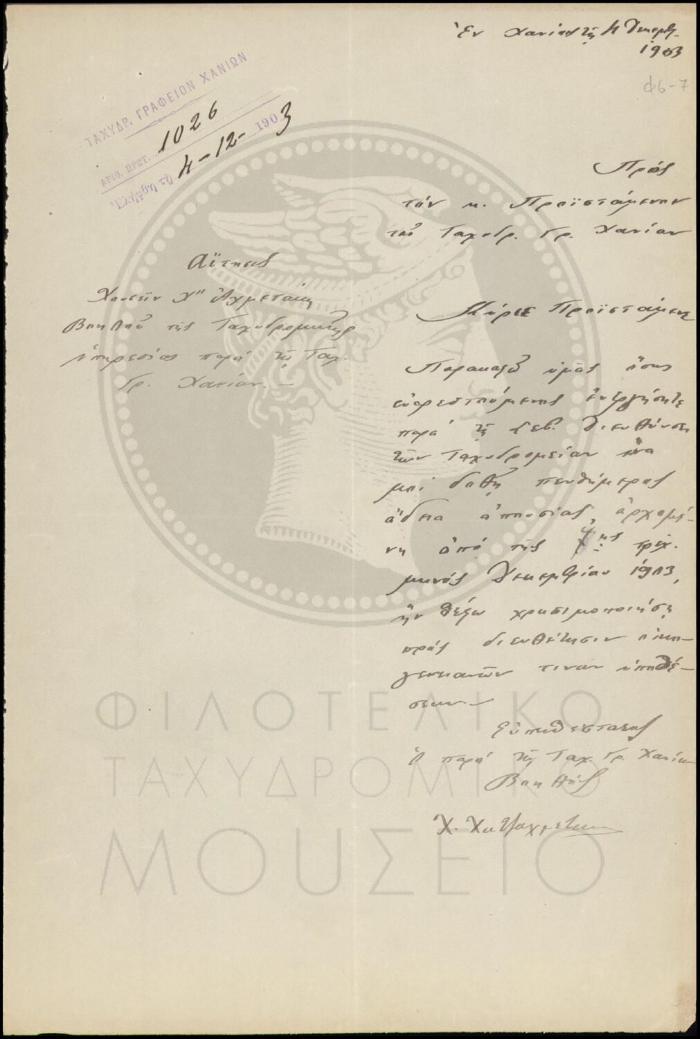 Ἐν Χανίοις τῇ 4 Δεκεμβ.
1903
φ6-7
ΤΑΧΥΔΡ. ΓΡΑΦΕΙΟΝ ΧΑΝΙΩΝ
ΑΡΙΘ. ΠΡΩΤ. 1026
4-12-1903
Πρὸς
τὸν κ. Προϊστάμενον
τοῦ Ταχυδρ. Γρ. Χανίων
Αἴτησις
Χουσεῒν Χ" Ἀχμετάκη
Βοηθοῦ τῆς Ταχυδρομικῆς
ὑπηρεσίας παρὰ τῷ Ταχ.
Γρ. Χανίων.—
Κύριε Προϊστάμενε
Παρακαλῶ ὑμᾶς ὅπως
εὐαρεστούμενος ἐνεργήσητε
παρὰ τῇ Σεβ. Διευθύνσει
τῶν Ταχυδρομείων ἵνα
μοὶ δοθῇ πενθήμερος
ἄδεια ἀπουσίας, ἀρχομέ-
νη ἀπὸ τῆς 7ης τρέχ.
μηνὸς Δεκεμβρίου 1903,
ἣν θέλω χρησιμοποιήσει
πρὸς διευθέτησιν οἰκο-
γενειακῶν τινων ὑποθέ-
σεων.—
Εὐπειθέστατος
Ὁ παρὰ τῷ Ταχ. Γρ. Χανίων
Βοηθός
Χ. Χατζαχμετάκης
ΦΙΛΟΤΕΛΙΚΟ
ΤΑΧΥΔΡΟΜΙΚΟ
ΜΟUΣΕΙΟ